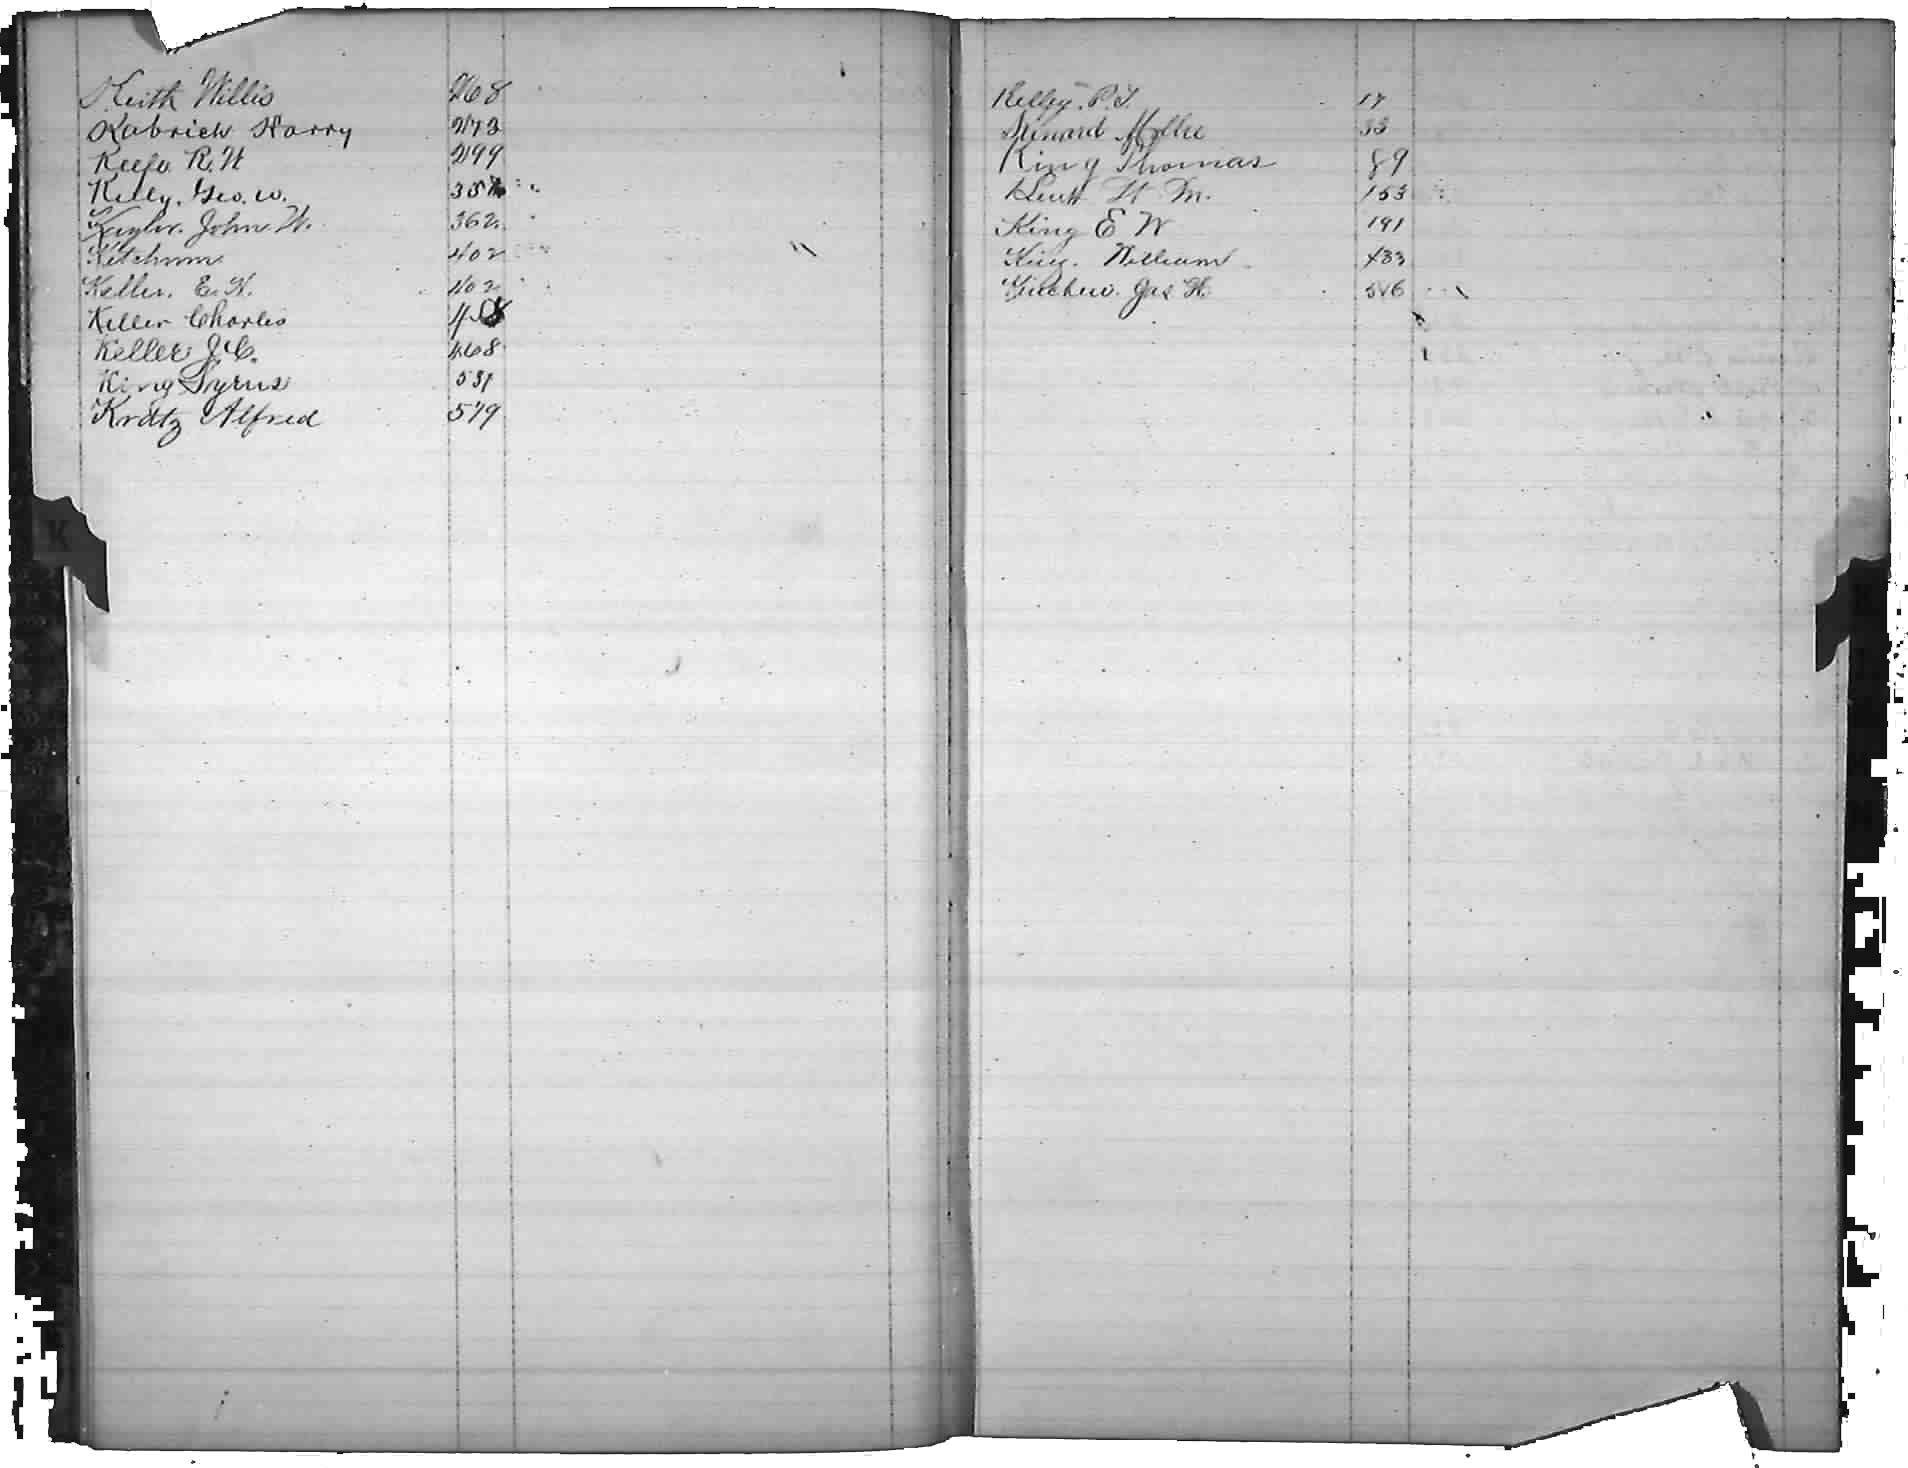 Keith Willis 268
Kabrich Harry 273
Keefe R. H 299
Kelly, Geo. W. 357
Kaylor. John W. 362
Ketchum 402
Keller. E. H. 402
Keller Charles 458
Keller J. C. 468
King Syrus 531
Kratz Alfred 579
K
Kelley. P. T. 17
Mollie 33
King Thomas 89
M. 153
King E W 191
King. William 433
Jas H. 546